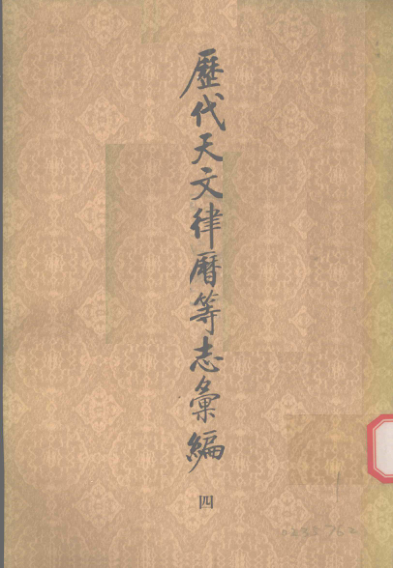 歷代天文律曆等志彙編
四